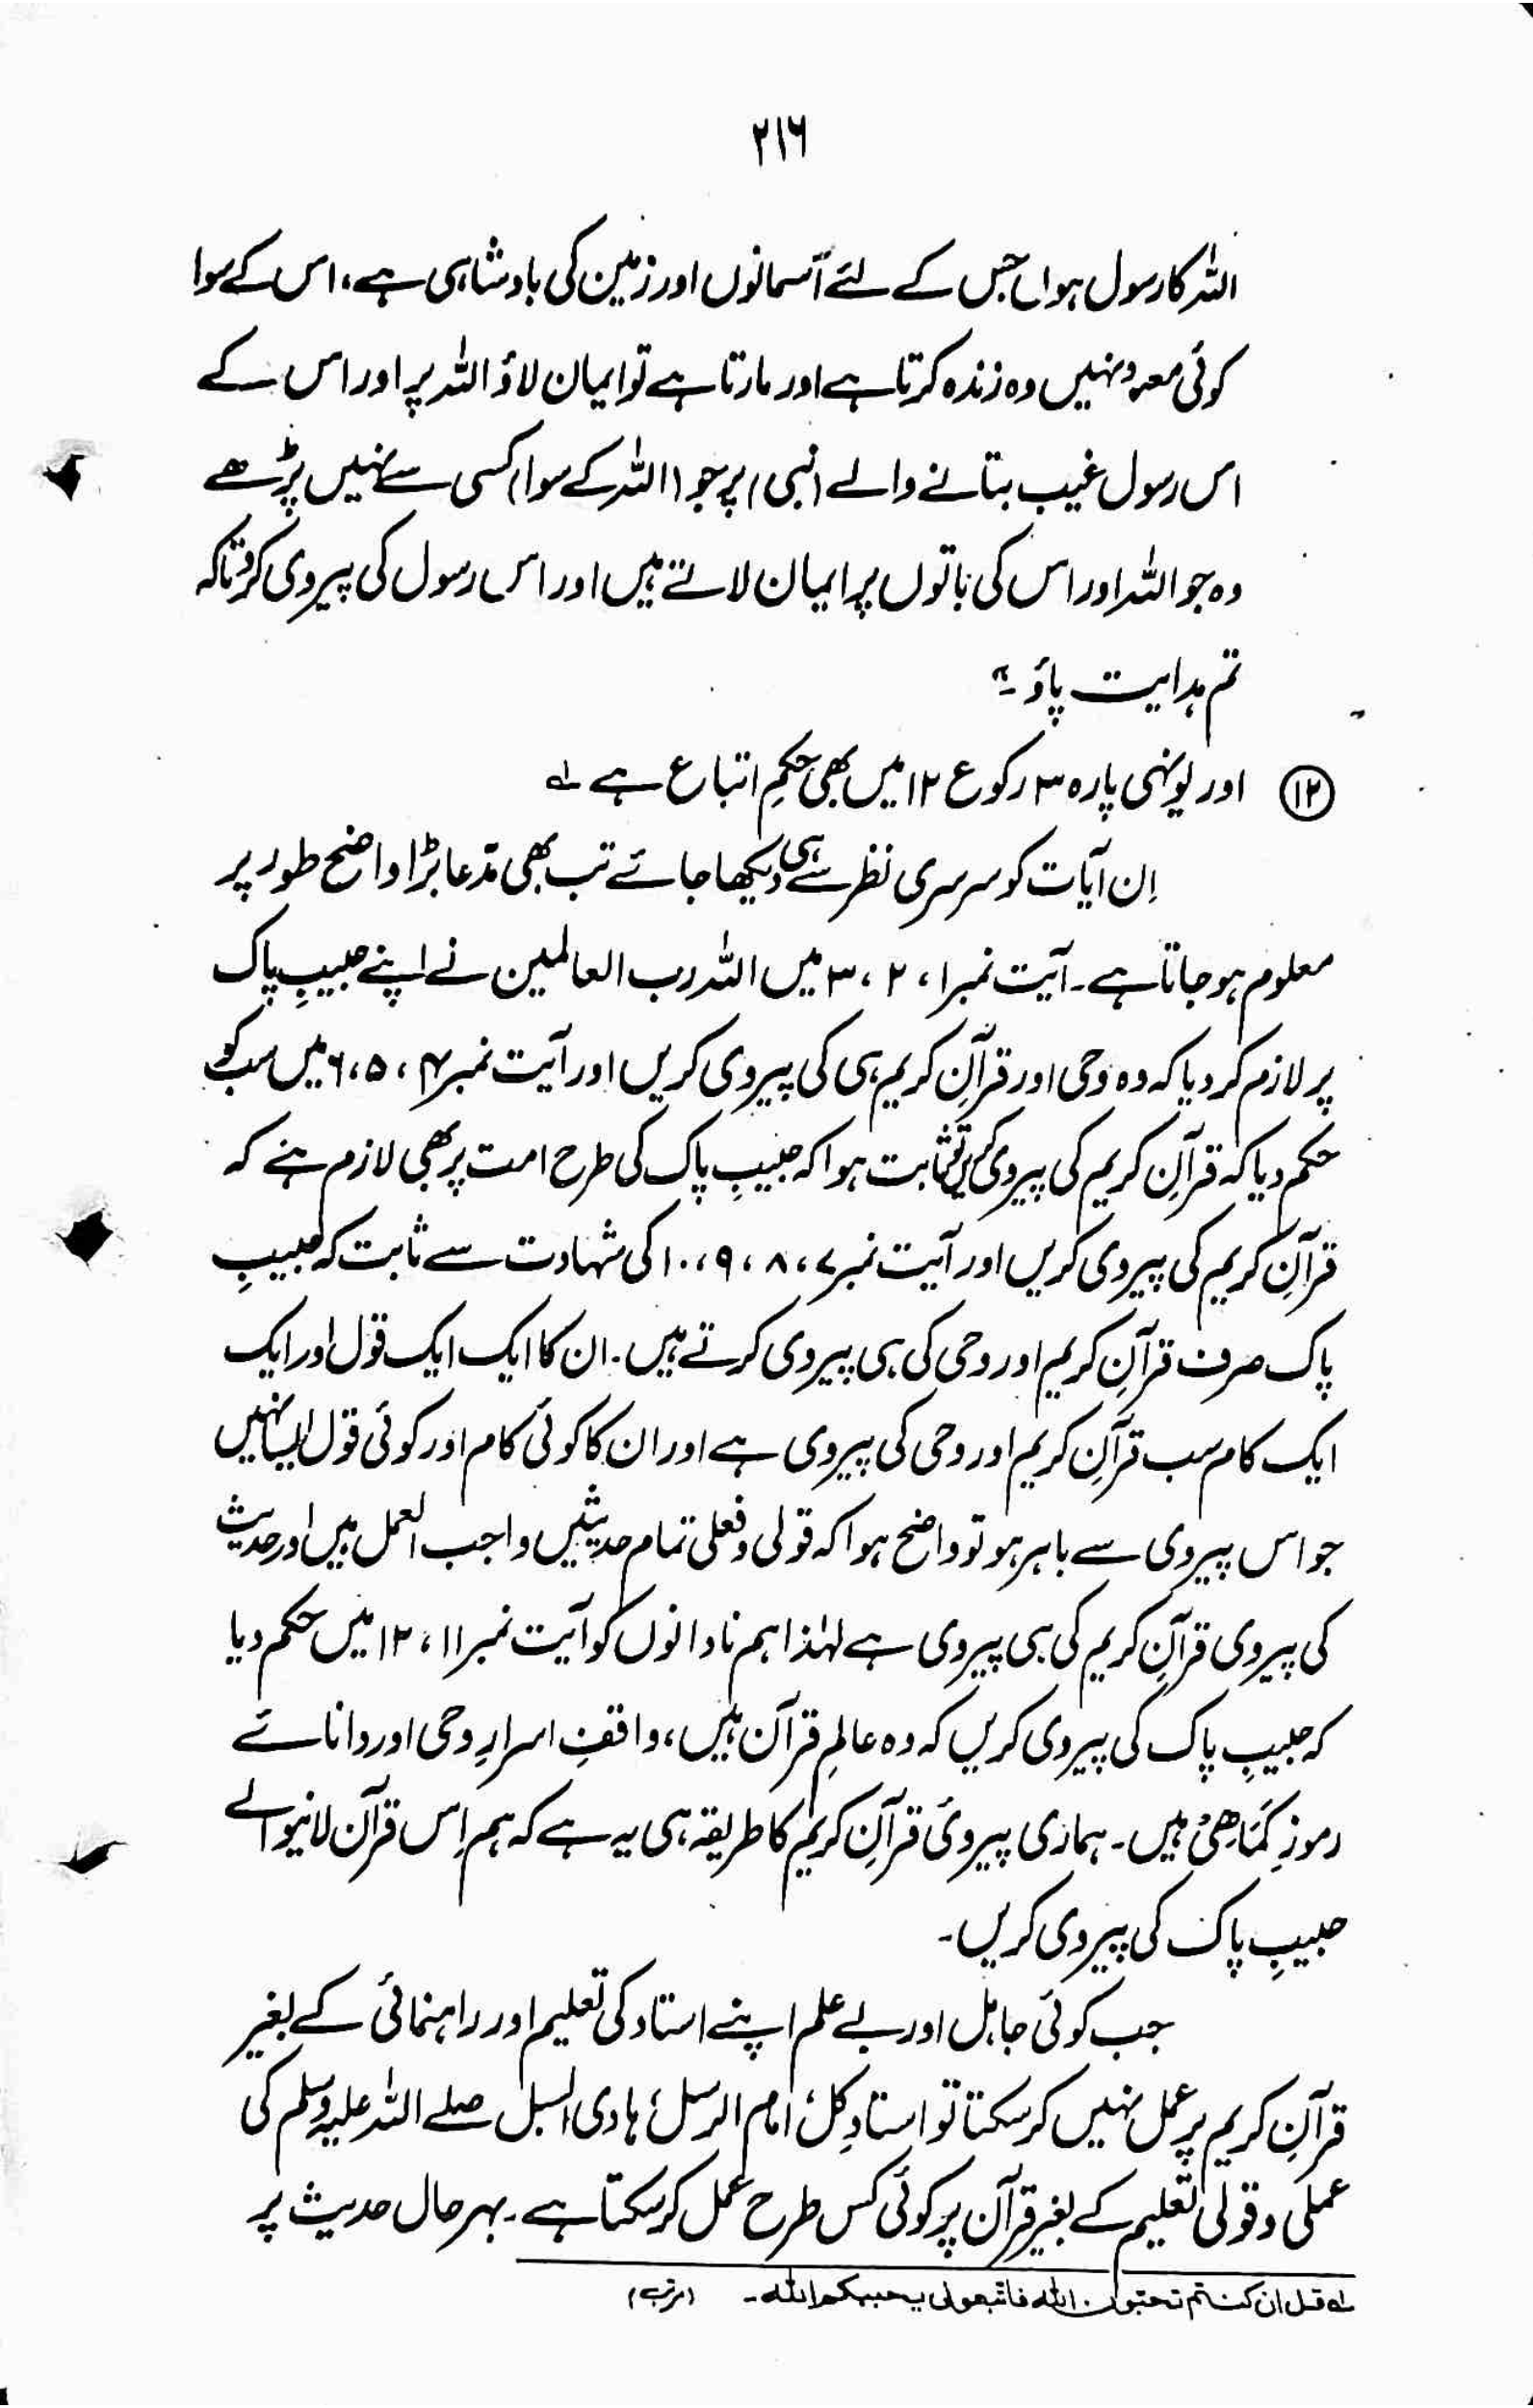 ۲۱۶
اللہ کا رسول ہوں جس کے لئے آسمانوں اور زمین کی بادشاہی ہے، اس کے سوا
کوئی معبود نہیں وہ زندہ کرتا ہے اور مارتا ہے تو ایمان لاؤ اللہ پر اور اس کے
اس رسول غیب بتانے والے (نبی) پر جو (اللہ کے سوا) کسی سے نہیں پڑھے
وہ جو اللہ اور اس کی باتوں پر ایمان لاتے ہیں اور اس رسول کی پیروی کرو تاکہ
تم ہدایت پاؤ۔"
۱۲ اور یونہی پارہ ۳ رکوع ۱۲ میں بھی حکمِ اتباع ہے لہ
اِن آیات کو سرسری نظر سے ہی دیکھا جائے تب بھی مدّعا بڑا واضح طور پر
معلوم ہو جاتا ہے۔ آیت نمبر ۱، ۲، ۳ میں اللہ رب العالمین نے اپنے حبیبِ پاک
پر لازم کر دیا کہ وہ وحی اور قرآنِ کریم ہی کی پیروی کریں اور آیت نمبر ۴، ۵، ۶ میں سب کو
حکم دیا کہ قرآنِ کریم کی پیروی کریں تو ثابت ہوا کہ حبیبِ پاک کی طرح امت پر بھی لازم ہے کہ
قرآنِ کریم کی پیروی کریں اور آیت نمبر ۷، ۸، ۹، ۱۰ کی شہادت سے ثابت کہ حبیبِ
پاک صرف قرآنِ کریم اور وحی کی ہی پیروی کرتے ہیں۔ ان کا ایک ایک قول اور ایک
ایک کام سب قرآنِ کریم اور وحی کی پیروی ہے اور ان کا کوئی کام اور کوئی قول ایسا نہیں
جو اس پیروی سے باہر ہو تو واضح ہوا کہ قولی و فعلی تمام حدیثیں واجب العمل ہیں اور حدیث
کی پیروی قرآنِ کریم کی ہی پیروی ہے لہٰذا ہم نادانوں کو آیت نمبر ۱۱، ۱۲ میں حکم دیا
کہ حبیبِ پاک کی پیروی کریں کہ وہ عالمِ قرآن ہیں، واقفِ اسرارِ وحی اور دانائے
رموزِ کَمَاھِیَ ہیں۔ ہماری پیروئ قرآنِ کریم کا طریقہ ہی یہ ہے کہ ہم اِس قرآن لانیوالے
حبیبِ پاک کی پیروی کریں۔
جب کوئی جاہل اور بے علم اپنے استاد کی تعلیم اور راہنمائی کے بغیر
قرآنِ کریم پر عمل نہیں کر سکتا تو استادِ کل، امام الرسل، ہادی السبل صلے اللہ علیہ وسلم کی
عملی و قولی تعلیم کے بغیر قرآن پر کوئی کس طرح عمل کر سکتا ہے۔ بہرحال حدیث پر
لہ قل ان کنتم تحبون اللہ فاتبعونی یحببکم اللہ۔ (مرتب)